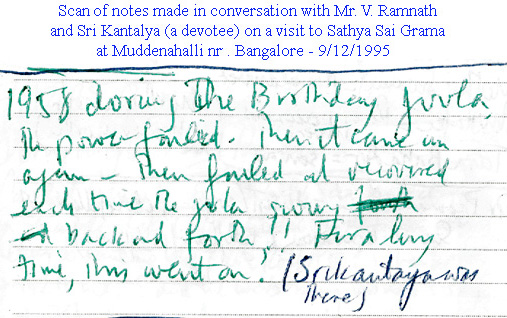 Scan of notes made in conversation with Mr. V. Ramnath
and Sri Kantalya (a devotee) on a visit to Sathya Sai Grama
at Muddenahalli nr . Bangalore - 9/12/1995
1958 during the Birthday Joola,
the power failed. Then it came on
again - then failed and recovered
each time the jula swung
back and forth!! For a long
time, this went on! (Srikantaya was
there)